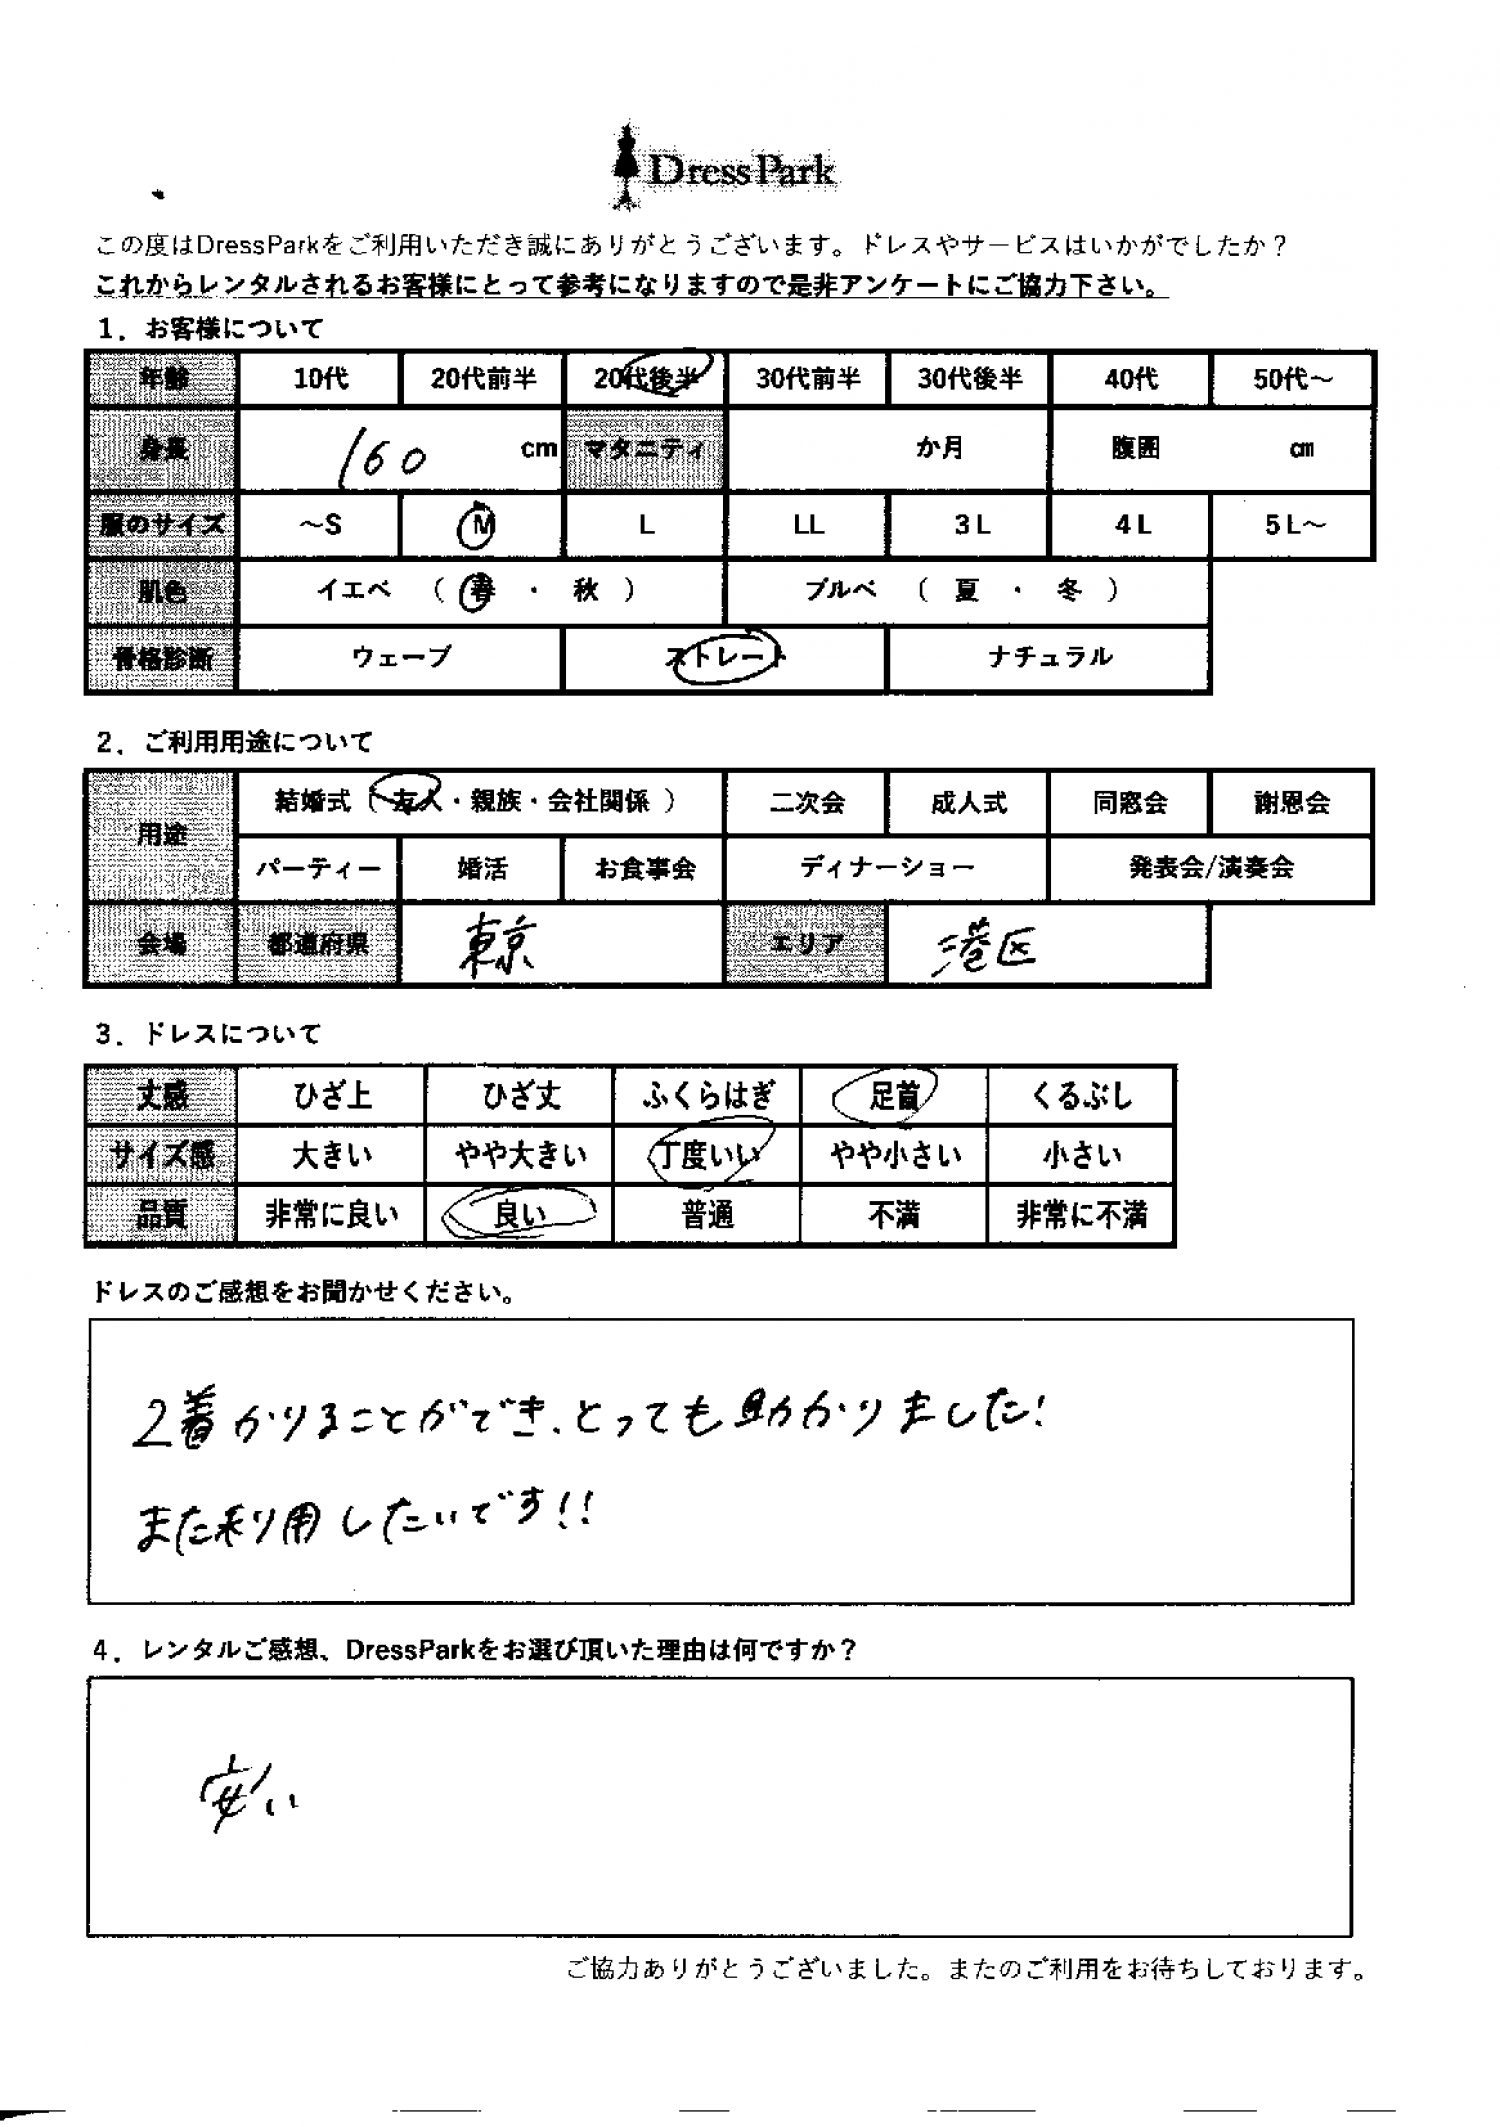 DressPark
この度はDressParkをご利用いただき誠にありがとうございます。ドレスやサービスはいかがでしたか？
これからレンタルされるお客様にとって参考になりますので是非アンケートにご協力下さい。
1．お客様について
年齢 10代 20代前半 20代後半 30代前半 30代後半 40代 50代～
身長 160 cm マタニティ か月 腹囲 ㎝
服のサイズ ～S M L LL 3L 4L 5L～
肌色 イエベ （ 春 ・ 秋 ） ブルベ （ 夏 ・ 冬 ）
骨格診断 ウェーブ ストレート ナチュラル
2．ご利用用途について
用途 結婚式（ 友人・親族・会社関係 ） 二次会 成人式 同窓会 謝恩会
パーティー 婚活 お食事会 ディナーショー 発表会/演奏会
会場 都道府県 東京 エリア 港区
3．ドレスについて
丈感 ひざ上 ひざ丈 ふくらはぎ 足首 くるぶし
サイズ感 大きい やや大きい 丁度いい やや小さい 小さい
品質 非常に良い 良い 普通 不満 非常に不満
ドレスのご感想をお聞かせください。
2着かりることができ、とっても助かりました！
また利用したいです！！
4．レンタルご感想、DressParkをお選び頂いた理由は何ですか？
安い
ご協力ありがとうございました。またのご利用をお待ちしております。